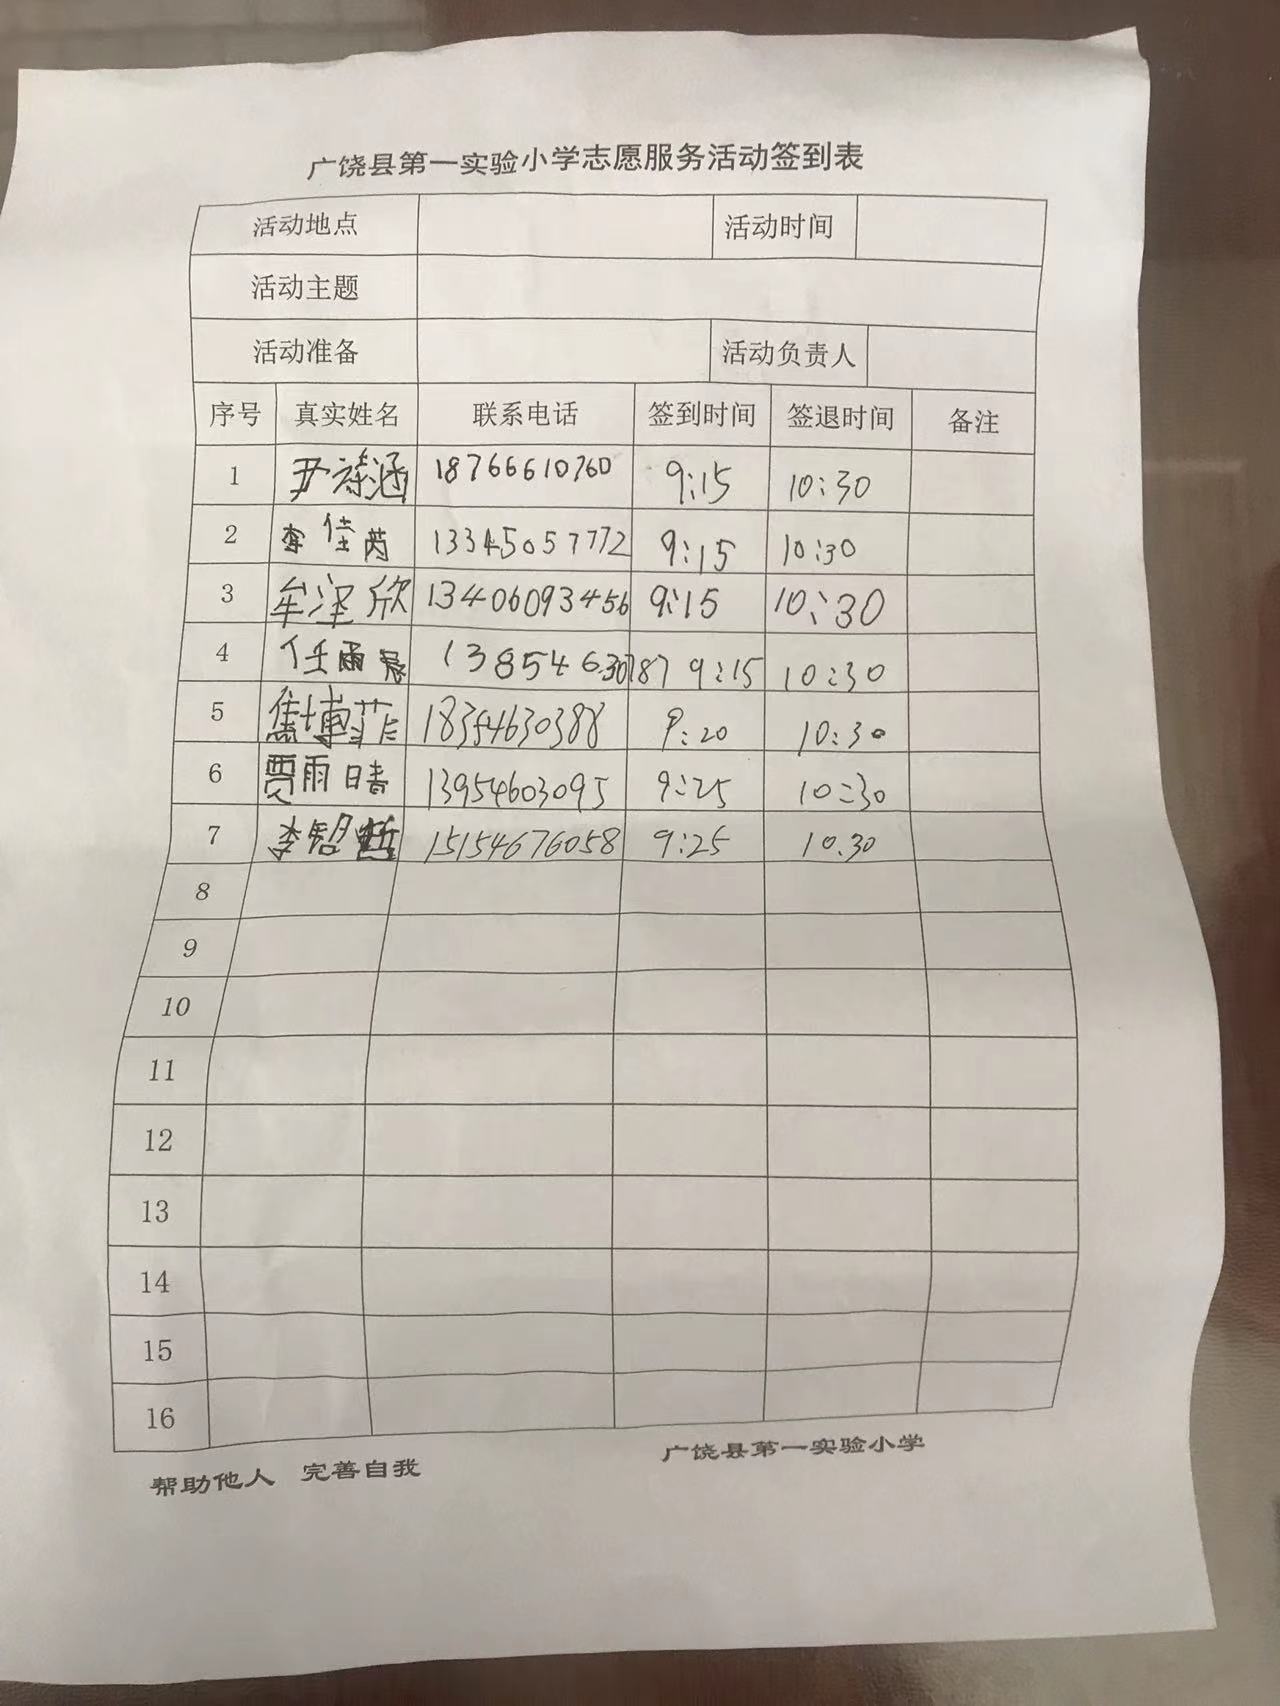 广饶县第一实验小学志愿服务活动签到表
活动地点 活动时间
活动主题
活动准备 活动负责人
序号 真实姓名 联系电话 签到时间 签退时间 备注
1 尹 涵 18766610760 9:15 10:30
2 李佳芮 13345057772 9:15 10:30
3 牟泽欣 13406093456 9:15 10:30
4 任雨 13854630787 9:15 10:30
5 焦博菲 18354630388 9:20 10:30
6 贾雨晴 13954603095 9:25 10:30
7 李哲 15154676058 9:25 10.30
8
9
10
11
12
13
14
15
16
帮助他人 完善自我 广饶县第一实验小学